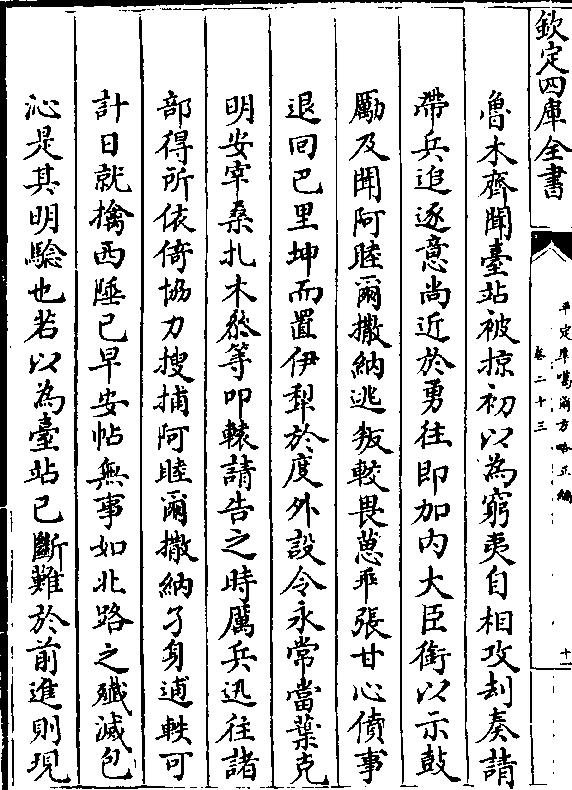 欽定四庫全書
平定準噶爾方略正編
卷二十三
十一
魯木齊聞臺站被掠初以為窮夷自相攻刦奏請
帶兵追逐意尚近於勇往即加内大臣銜以示鼓
勵及聞阿睦爾撒納逃叛較畏葸乖張甘心僨事
退回巴里坤而置伊犁於度外設令永常當葉克
明安宰桑扎木叅等叩轅請告之時厲兵迅往諸
部得所依倚協力搜捕阿睦爾撒納孑身逋軼可
計日就擒西陲已早安帖無事如北路之殲滅包
沁是其明驗也若以為臺站已斷難於前進則現